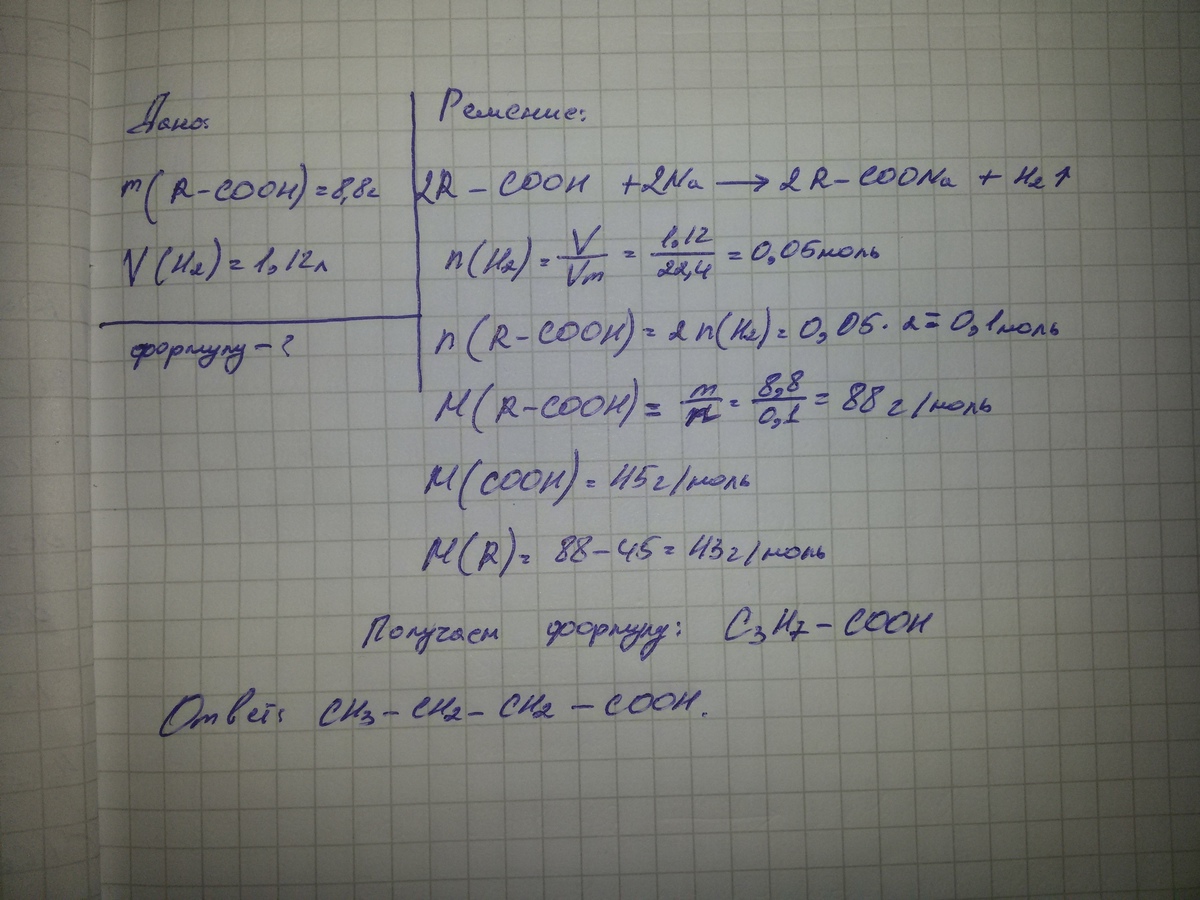 Дано:
m(R-COOH)=8,8г
V(H₂)=1,12л
формулу-?
Решение:
2R-COOH +2Na → 2R-COONa + H₂↑
n(H₂)= V/Vm = 1,12/22,4 = 0,05моль
n(R-COOH)= 2n(H₂)= 0,05·2= 0,1моль
M(R-COOH)= m/n = 8,8/0,1 = 88г/моль
M(COOH)= 45г/моль
M(R)= 88-45= 43г/моль
Получаем формулу: C₃H₇-COOH
Ответ: CH₃-CH₂-CH₂-COOH.